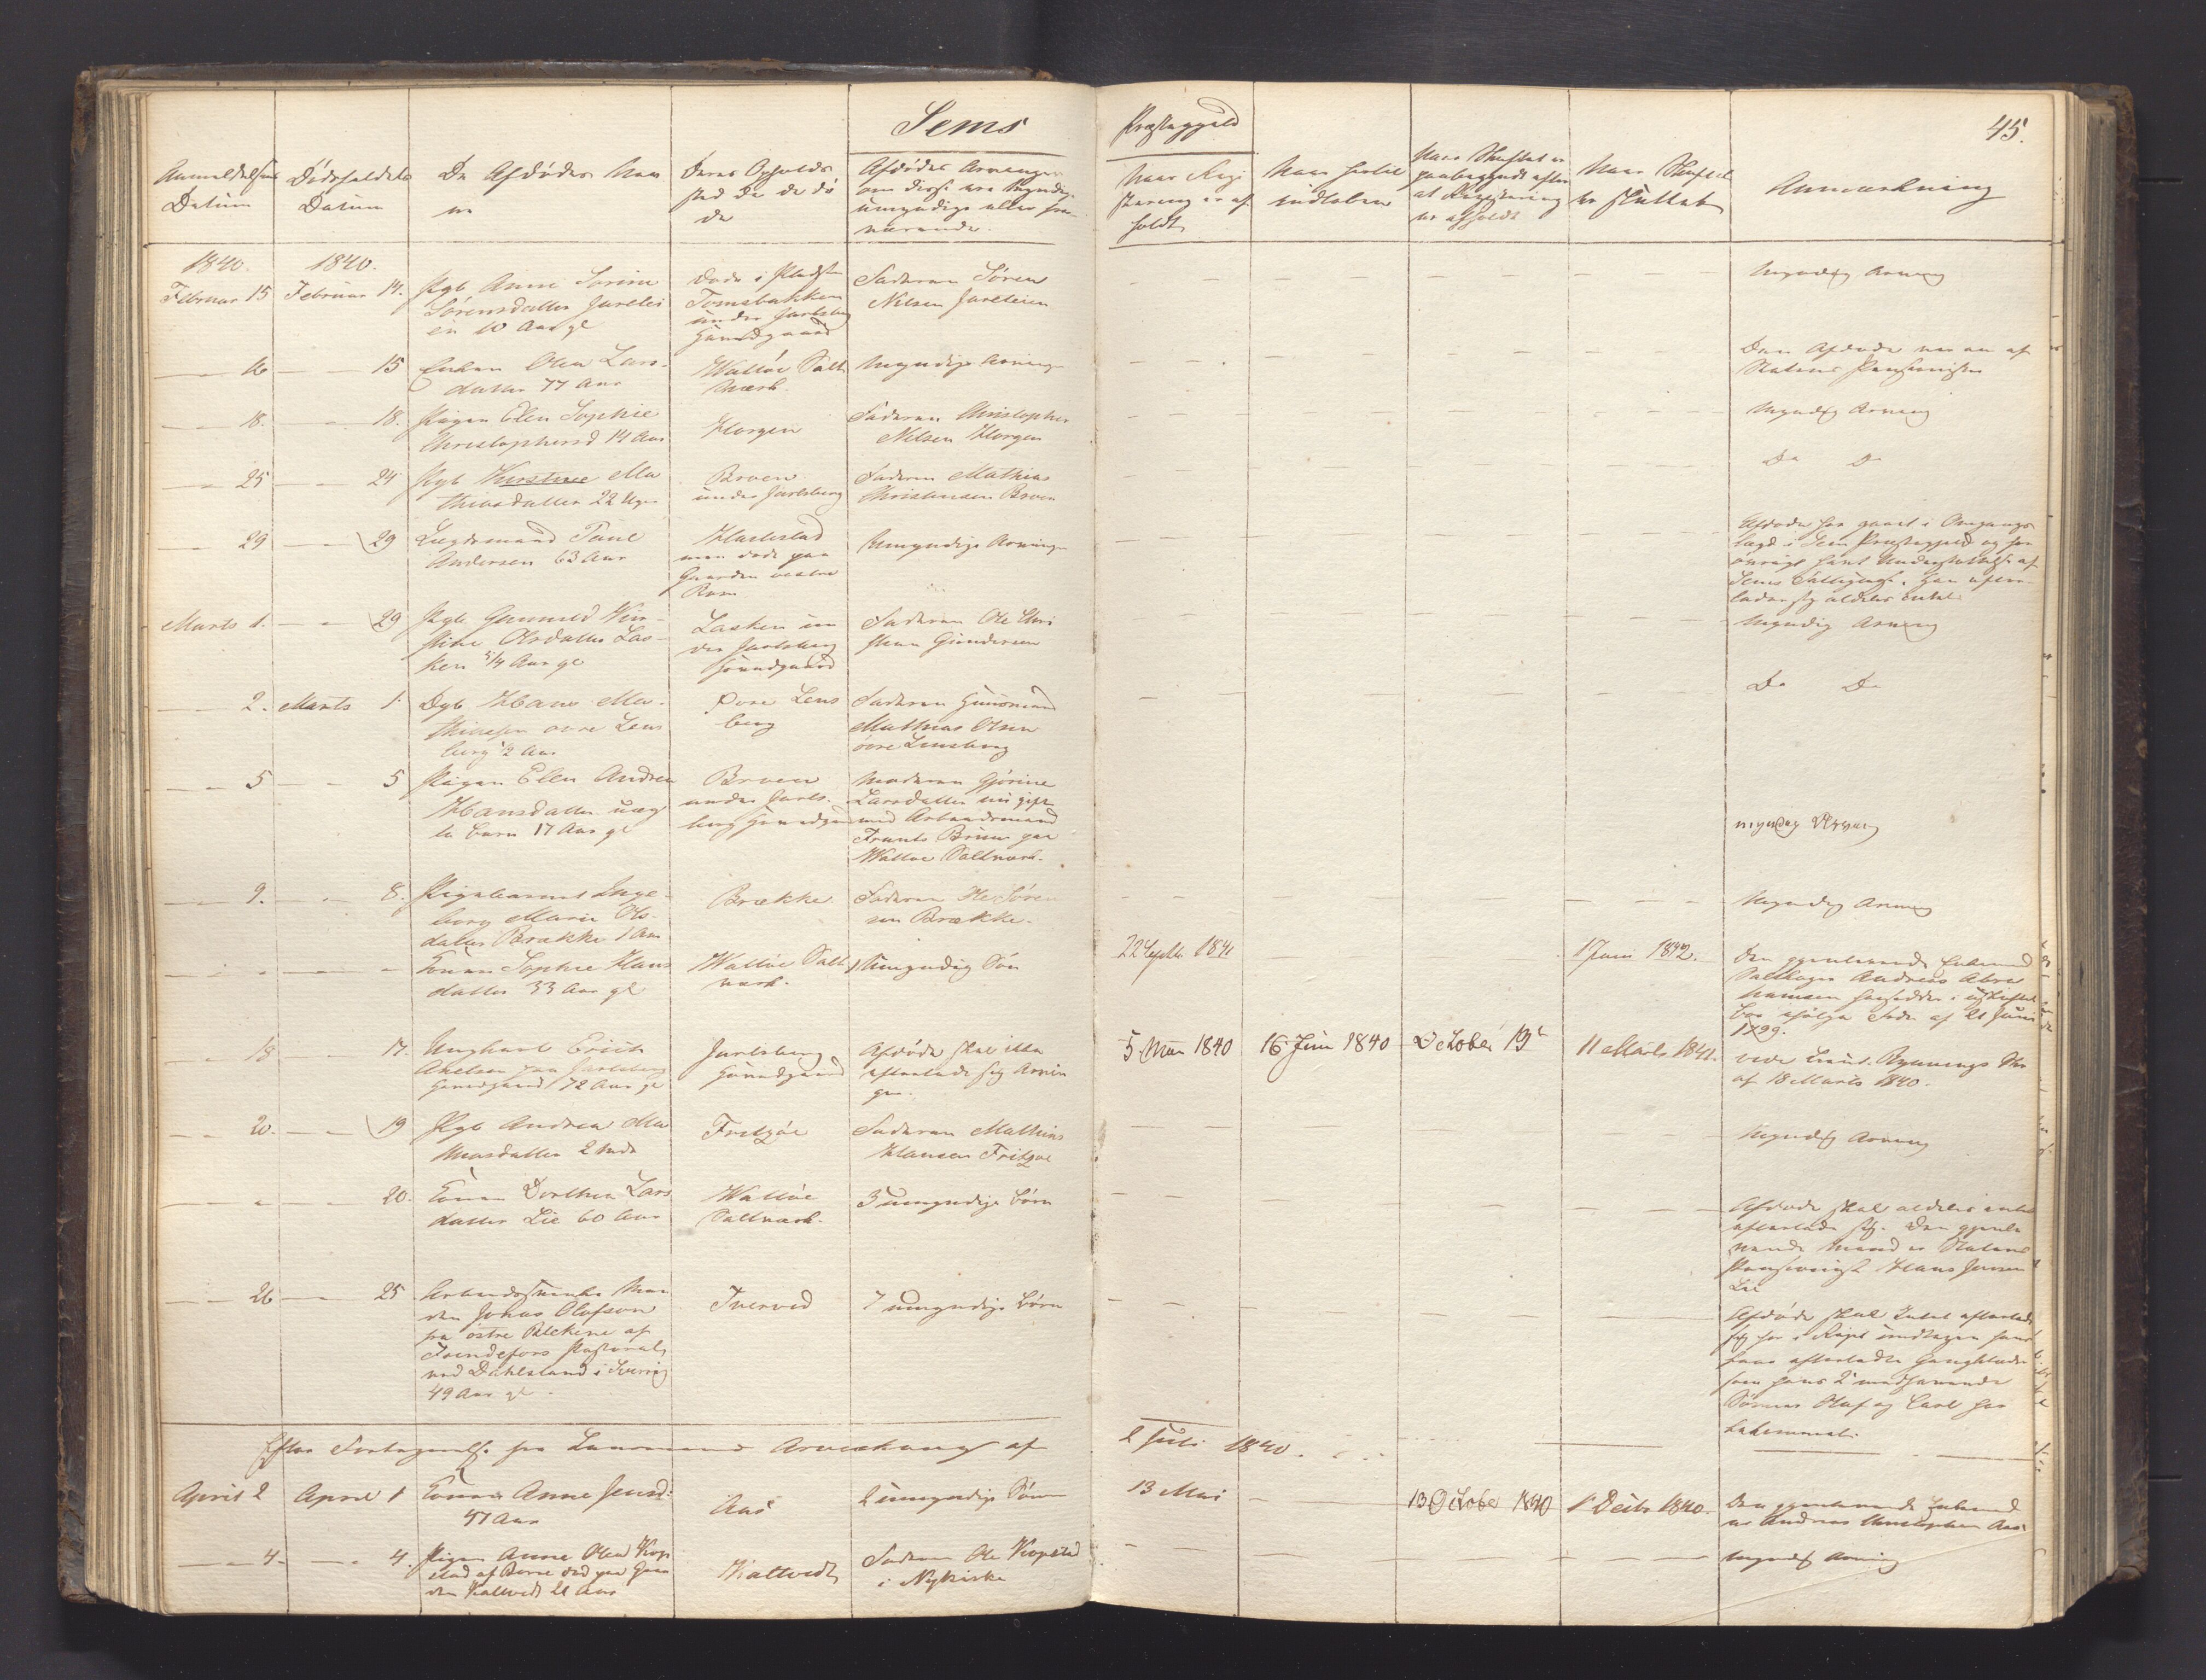 Sems
Præstegjeld
45.
Anmeldelsens Datum
Dødsfaldets Datum
De Afdødes Navne
Deres Opholdssted da de døde
Afdødes Arvinger om disse ere myndige umyndige eller fraværende.
Naar Registrering er afholdt
Naar indløben
Naar Skiftet er paabegyndt efter at Registrering er afholdt
Naar Skiftet er sluttet
Anmærkning
1840.
1840.
Februar 15
Februar 14.
Pgb Anne Sorine
Sørensdatter Jarlei
en 10 Aar gl
døde i Pladsen
Tomsbakken
under Jarlsberg
Hovedgaard
Faderen Søren
Nilsen Jarleien
Myndig Arving
16
15
Enken Olea Lars
datter 77 Aar
Walløe Salt
værk
Myndige Arvinger
Den Afdøde var en af
Statens Pensionister
18.
18.
Pigen Elen Sophie
Christophersd 14 Aar
Horgen
Faderen Christopher
Nilsen Horgen
Myndig Arving
25
24
Pgb Kirstine Ma
thiasdatter 22 Uger
Broen
under Jarlsberg
Faderen Mathias
Christensen Broen
Do Do
29
29
Lægdsmand Paul
Andersen 63 Aar
men døde paa
Gaarden vestre
Rom
Umyndige Arvinger
Afdøde har gaaet i Omgangs
lægd i Sem Præstegjeld og har
øvrigt havt Understøttelse af
Sems Fattigcasse. Han efter
lader sig aldeles Intet
Marts 1.
29
Pgb Gunnild Kir
stine Olsdatter Las
ken 5/4 Aar gl
Lasken un
der Jarlsberg
Hovedgaard
Faderen Ole Chri
stian Gundersen
Myndig Arving
2.
Marts 1
Dgb Hans Ma
thiesen øvre Lens
berg 1/2 Aar
Øvre Lens
berg
Faderen Huusmand
Mathias Olsen
øvre Lensberg
Do Do
5
5
Pigen Elen Andrea
Hansdatter uæg
te Barn 17 Aar gl
Broen
under Jarls
berg Hovedgaard
Moderen Gjørine
Larsdatter nu gift
med Arbeidsmand
Frants Bruun paa
Walløe Saltværk.
myndig Arving
9.
8.
Pigebarnet Inge
borg Marie Ols
datter Brække 1 Aar
Brække
Faderen Ole Søren
sen Brække.
Myndig Arving
Konen Sophie Hans
datter 33 Aar gl
Walløe Salt
værk.
1 Umyndig Søn
22 Septbr 1841
1 Juni 1842.
Den gjenlevende Enkemand
Saltkoger Andreas Abra
hamsen hensidder i uskiftet
Boe ifølge Frdn af 21 Juni
1799.
18
17.
Ungkarl Erich
Axelsen paa Jarlsberg
Hovedgaard 72 Aar gl
Jarlsberg
Hovedgaard
Afdøde skal ikke
efterlade sig Arvin
ger.
5 Mai 1840
16 Juni 1840
October 19
11 Marts 1841.
af 18 Marts 1840.
20.
19
Pgb Andrea Ma
thiasdatter 2 Mdr
Fritzøe
Faderen Mathias
Hansen Fritzøe
Myndig Arving
20.
Konen Dorthea Lars
datter Lie 60 Aar
Walløe
Saltværk.
3 umyndige Børn
Afdøde skal aldeles intet
efterlade sig. Den gjenle
vende Mand er Statens
Pensionist Hans Jensen
Lie
26
25
Arbeidssvenske Man
den Johas Olafson
fra østre
Pastorat,
ved Dahlsland i Sverrig
49 Aar gl.
7 umyndige Børn
Afdøde skal Intet efterlade
sig her i Riget undtagen hans
efterladte Gangklæder
som hans 2 medhavende
Sønner Olaf og Carl har
bekommet.
Efter Foretagende fra Lensmand
af
2 Juli 1840.
April 2
April 1
Konen Anne Jensd:
47 Aar
Aas
2 umyndige Sønner
13 Mai
13 October 1840
1 Decbr 1840.
Den gjenlevende Enkemand
er Andreas Christophersen Aas
4.
4.
Pigen Anne Olea Kop
stad af Borre død paa Gaar
den Kaltvedt 21 Aar
Kaltvedt
Faderen Ole Kopstad
i Nykirke
Myndig Arving